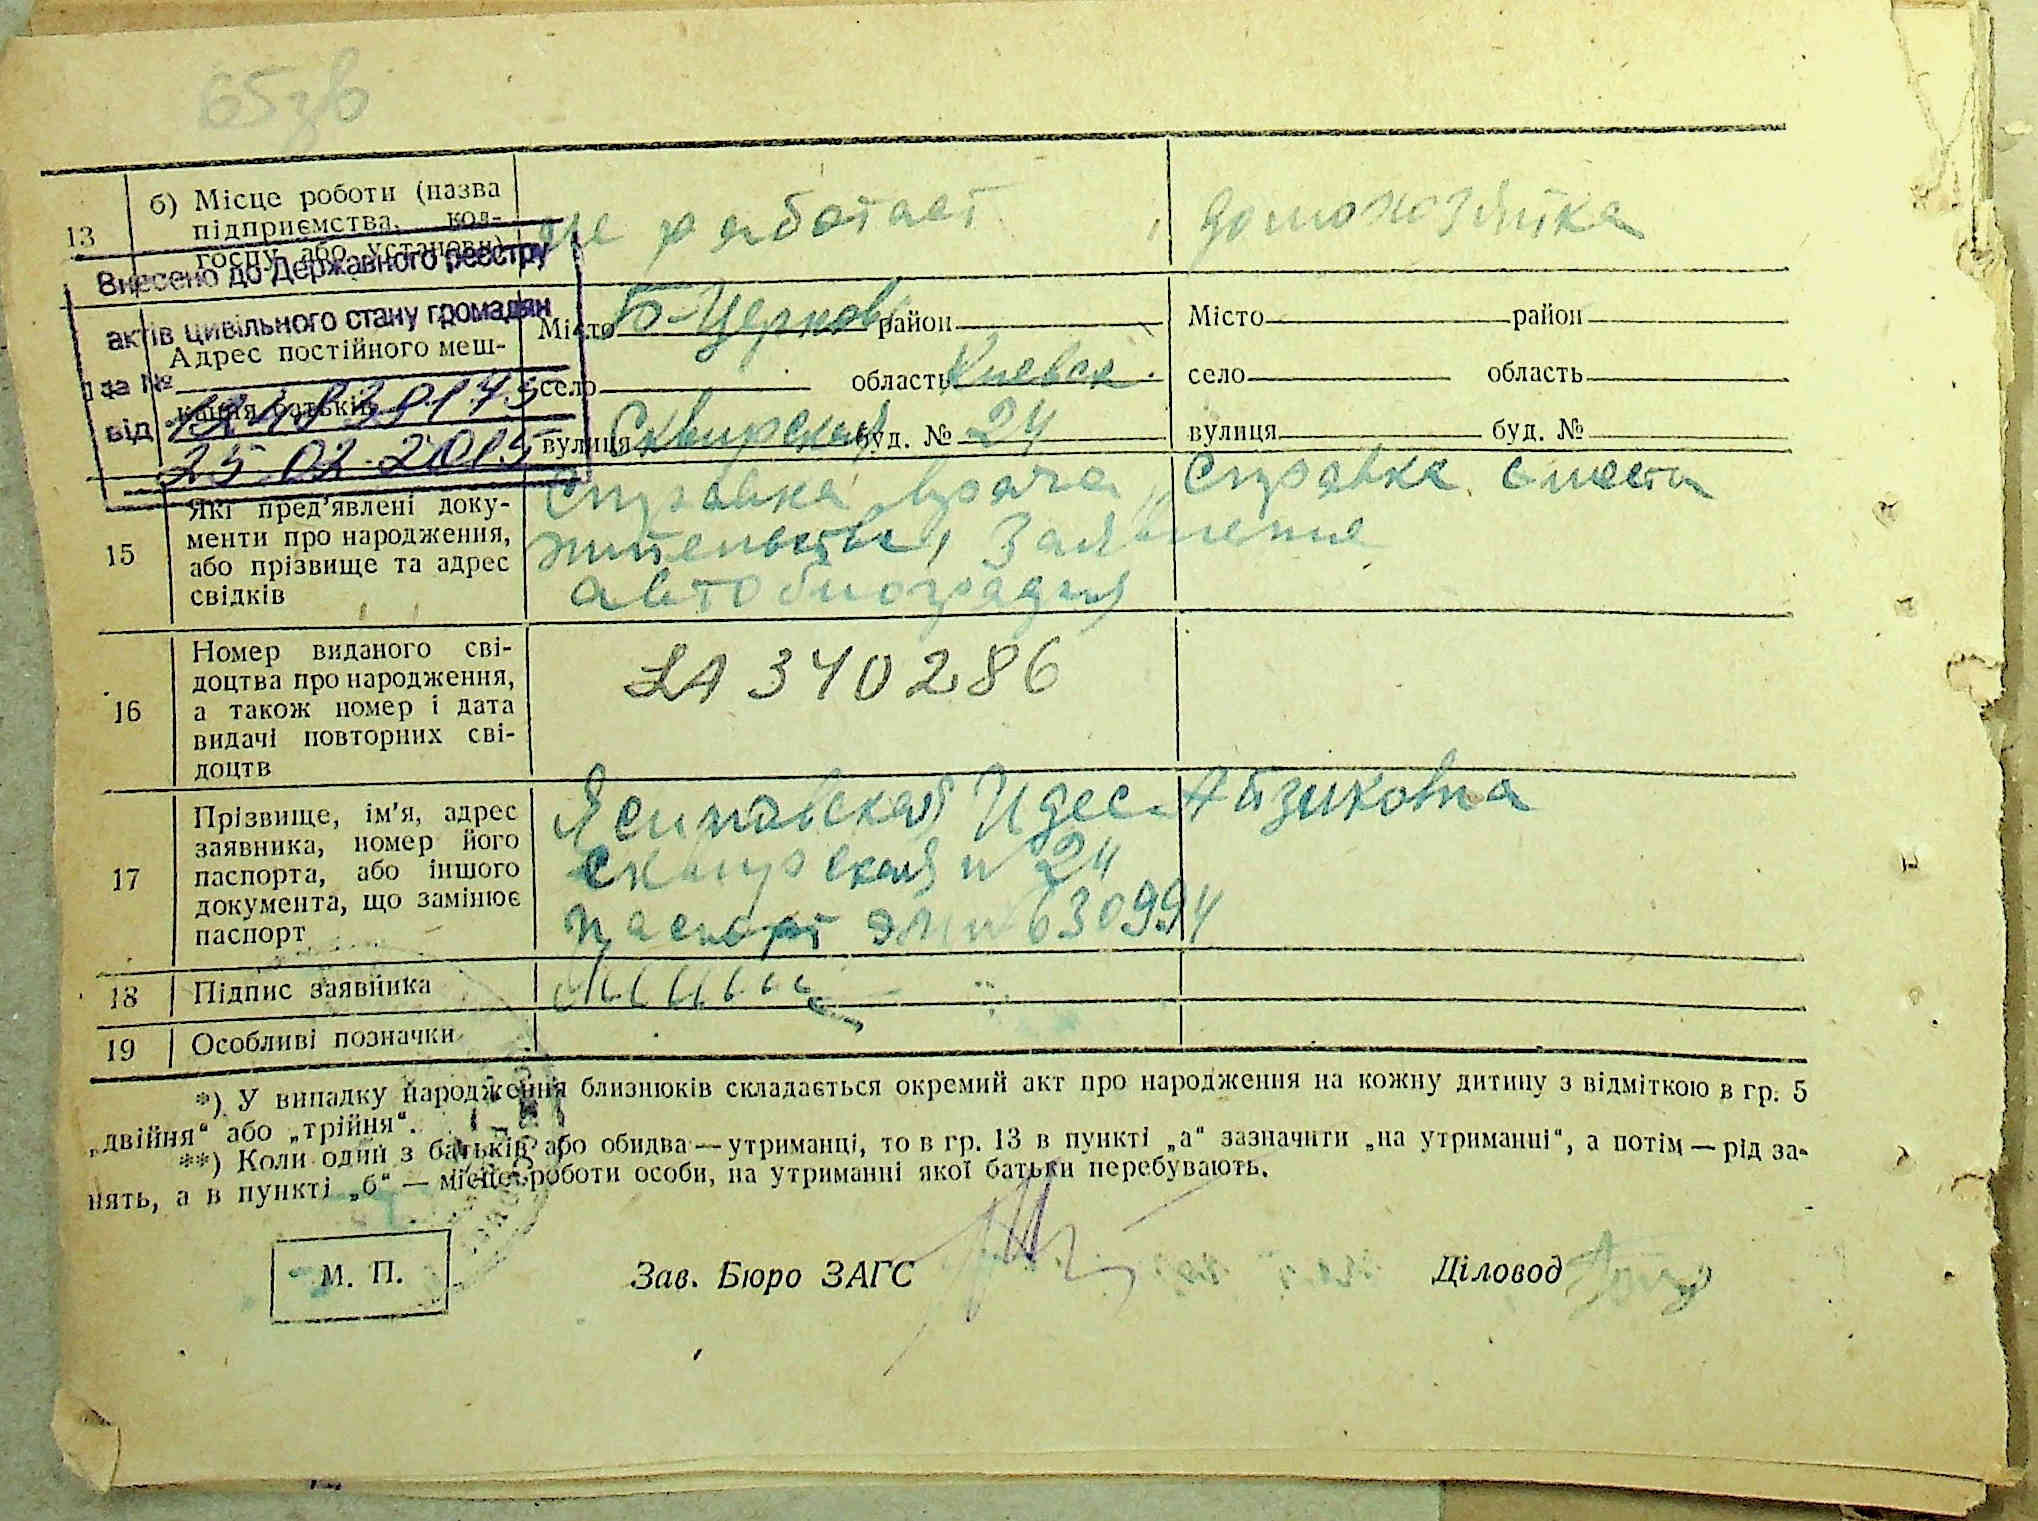 65зв
13
б) Місце роботи (назва
підприємства, кол-
госпу або установи)
не работает
домохозяйка
Внесено до Державного реєстру
актів цивільного стану громадян
за №
від
25.02.2015
Адрес постійного меш-
кання батьків
Місто Б-Церковь район
село область Киевск.
вулиця Сквирская буд. № 24
Місто район
село область
вулиця буд. №
15
Які пред'явлені доку-
менти про народження,
або прізвище та адрес
свідків
Справка врача, Справка с места
жительства, Заявление
автобиография
16
Номер виданого сві-
доцтва про народження,
а також номер і дата
видачі повторних сві-
доцтв
340286
17
Прізвище, ім'я, адрес
заявника, номер його
паспорта, або іншого
документа, що замінює
паспорт
Идес Айзиковна
Сквирская № 24
паспорт № 630994
18
Підпис заявника
19
Особливі позначки
*) У випадку народження близнюків складається окремий акт про народження на кожну дитину з відміткою в гр. 5
„двійня“ або „трійня“.
**) Коли один з батьків або обидва — утриманці, то в гр. 13 в пункті „а“ зазначити „на утриманні“, а потім — рід за-
нять, а в пункті „б“ — місце роботи особи, на утриманні якої батьки перебувають.
М. П.
Зав. Бюро ЗАГС
Діловод